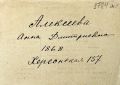 Алексеева
Анна Дмитриевна
186 я
Херсонская 157